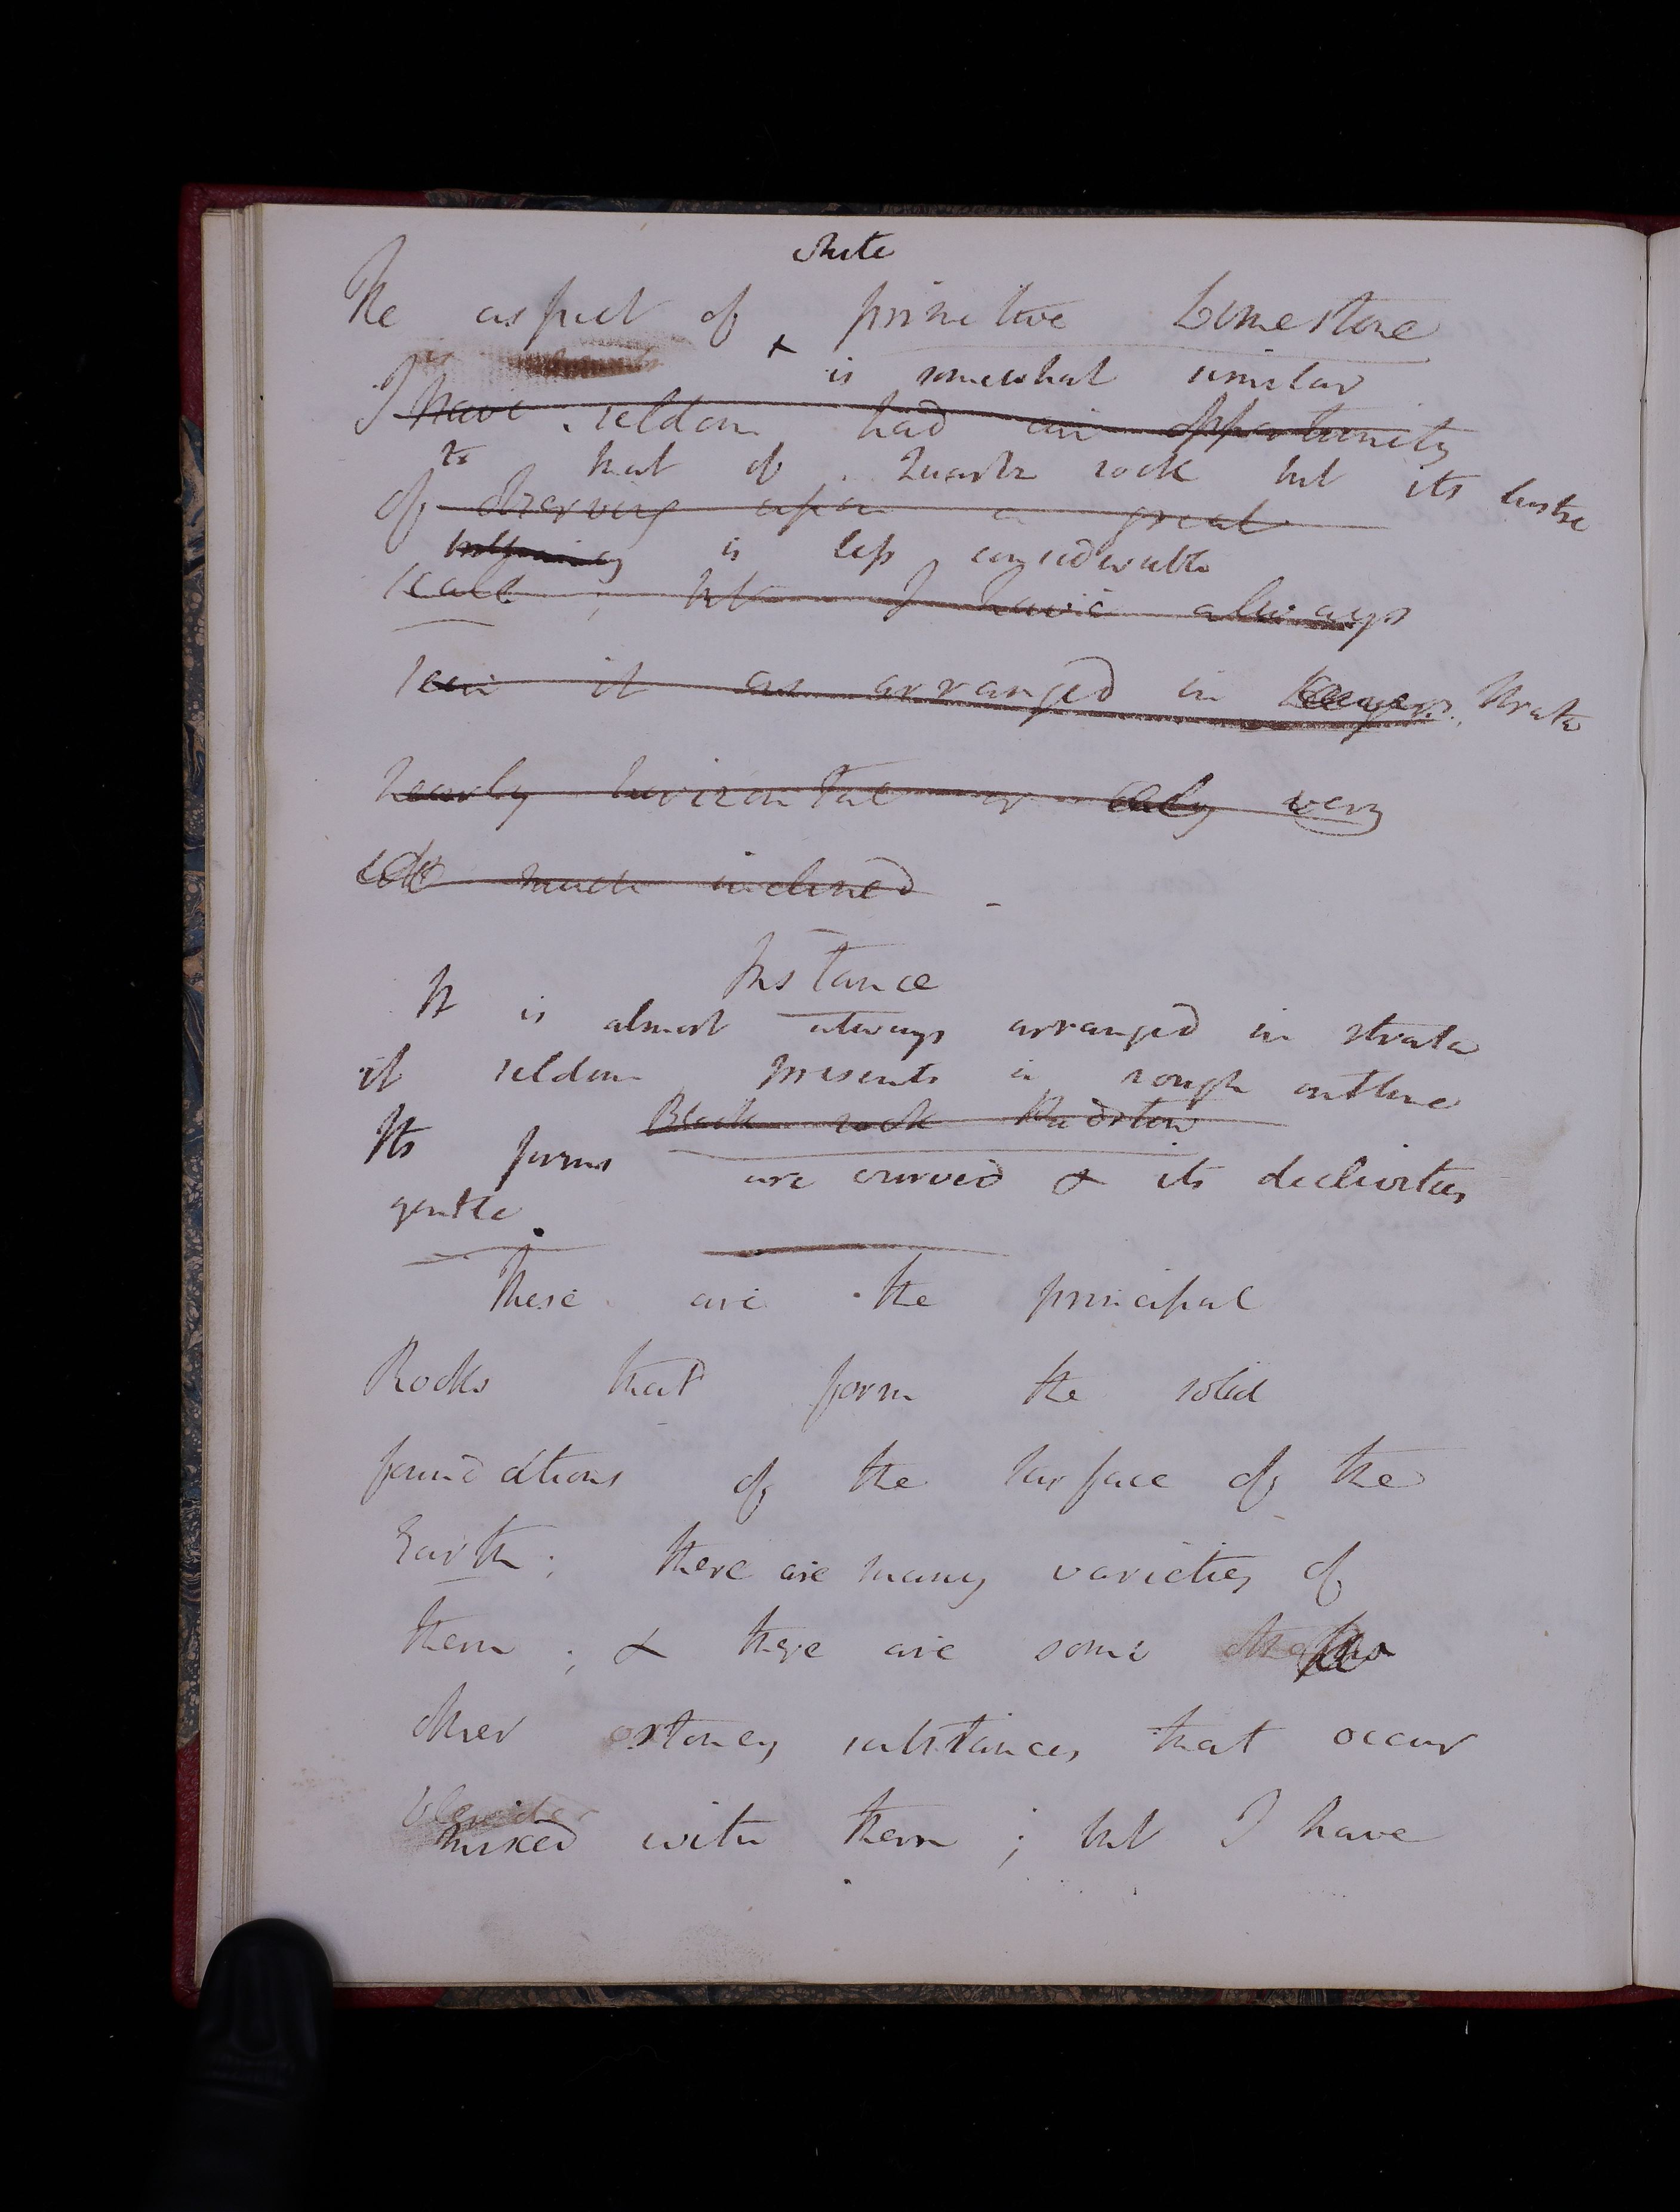 white
The aspect of x primitive Limestone
is somewhat similar
I have seldom had an opportunity
to that of Quartz rock but its lustre
of observing upon a great
is less considerable
scale; but I have always
seen it as arranged in Layers. Strata
nearly horizontal or very
much inclined
Instance
It is almost always arranged in strata
it seldom presents a rough outline
Black rock
Its forms are curved & its declivities
gentle.
These are the principal
Rocks that form the solid
foundations of the surface of the
Earth; there are many varieties of
them; & there are some
other stoney substances that occur
blended
mixed with them; but I have